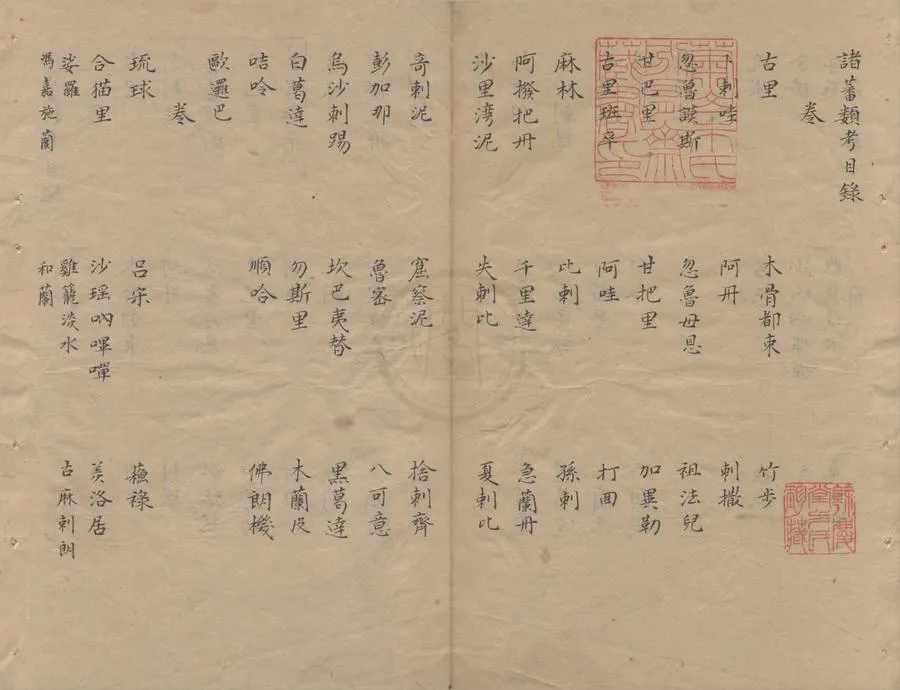 諸蕃類考目錄
卷
古里 木骨都束 竹步
卜剌哇 阿丹 剌撒
忽魯謨斯 忽魯毋恩 祖法兒
甘巴里 甘把里 加異勒
古里班卒 阿哇 打回
麻林 比剌 孫剌
阿撥把丹 千里達 急蘭丹
沙里湾泥 失剌比 夏剌比
奇剌泥 窟察泥 捨剌齊
彭加那 魯密 八可意
烏沙剌踢 坎巴夷替 黑葛達
白葛達 勿斯里 木蘭皮
咭呤 順哈 佛朗機
歐邏巴
卷
琉球 呂宋 蘓祿
合猫里 沙瑶吶嗶嘽 美洛居
娑羅 雞籠淡水 古麻剌朗
馮嘉施蘭 和蘭